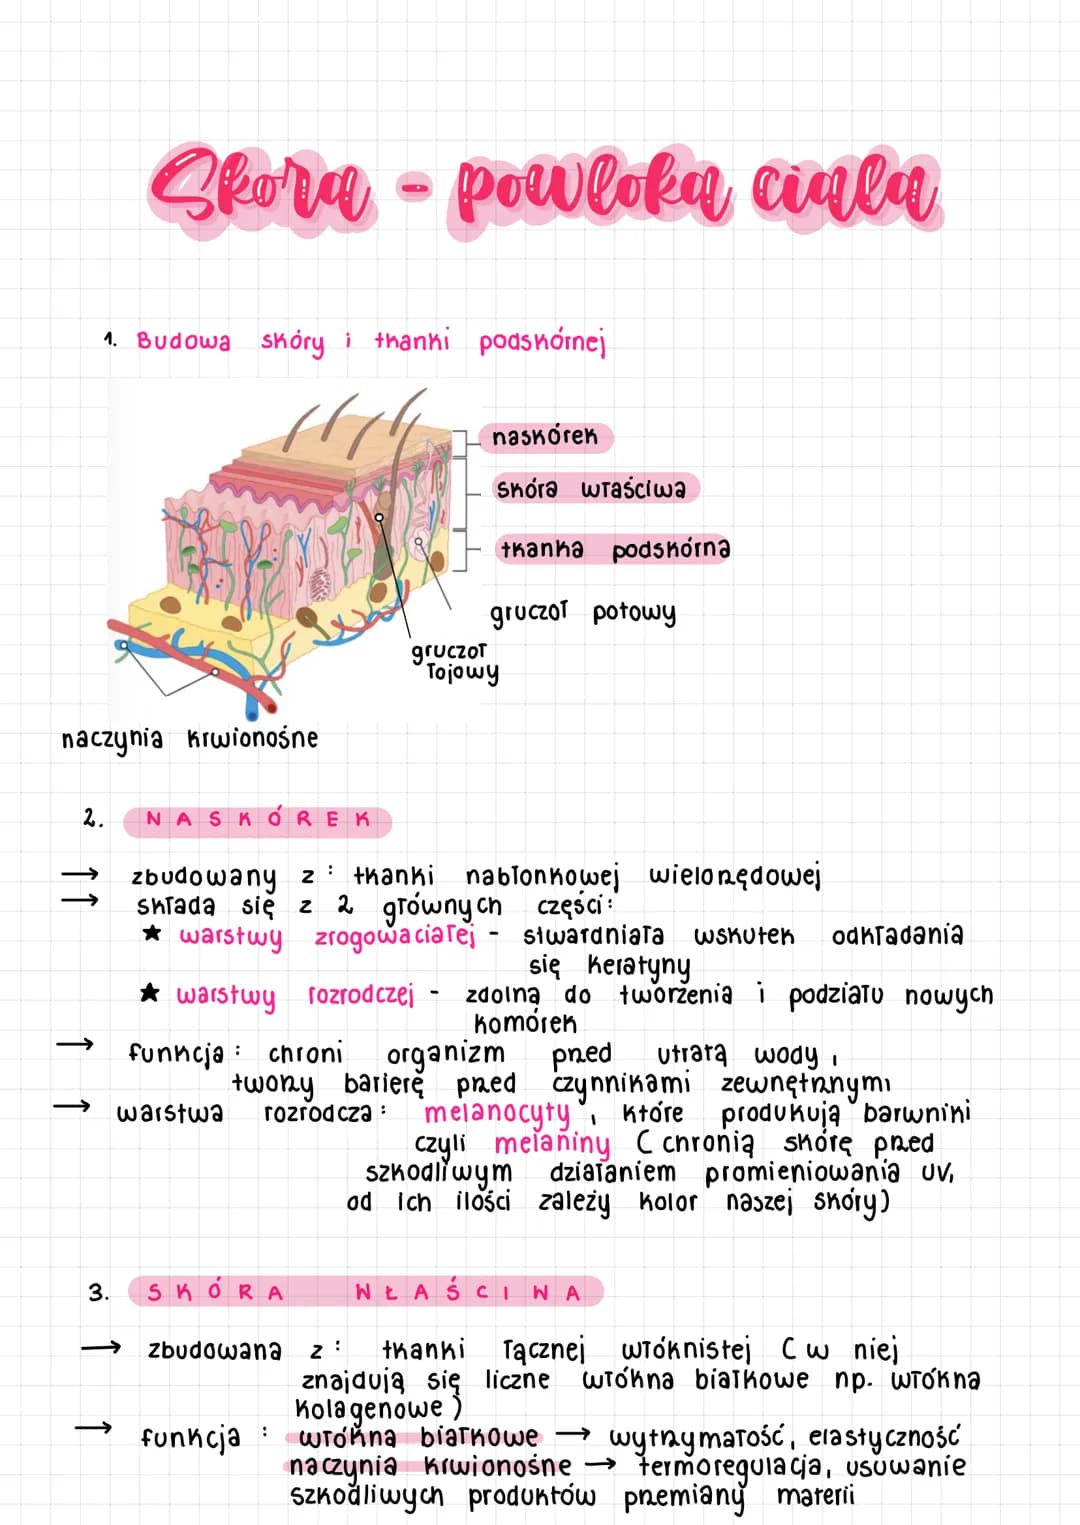 Skora - powloka ciala
1. Budowa skóry i tkanki podskórnej
naskórek
skóra właściwa
tkanka podskórna
gruczoł potowy
gruczoł
łojowy
naczynia krwionośne
2. NASKÓREK
→ zbudowany z: tkanki nabłonkowej wielorzędowej
→ składa się z 2 głównych części:
★ warstwy zrogowaciałej - stwardniała wskutek odkładania
się keratyny
★ warstwy rozrodczej - zdolna do tworzenia i podziału nowych
komórek
→ funkcja: chroni organizm przed utratą wody,
tworzy barierę przed czynnikami zewnętrznymi
→ warstwa rozrodcza: melanocyty, które produkują barwniki
czyli melaniny (chronią skórę przed
szkodliwym działaniem promieniowania UV,
od ich ilości zależy kolor naszej skóry)
3. SKÓRA WŁAŚCIWA
→ zbudowana z: tkanki łącznej włóknistej (w niej
znajdują się liczne włókna białkowe np. włókna
kolagenowe)
→ funkcja: włókna białkowe → wytrzymałość, elastyczność
naczynia krwionośne → termoregulacja, usuwanie
szkodliwych produktów przemiany materii